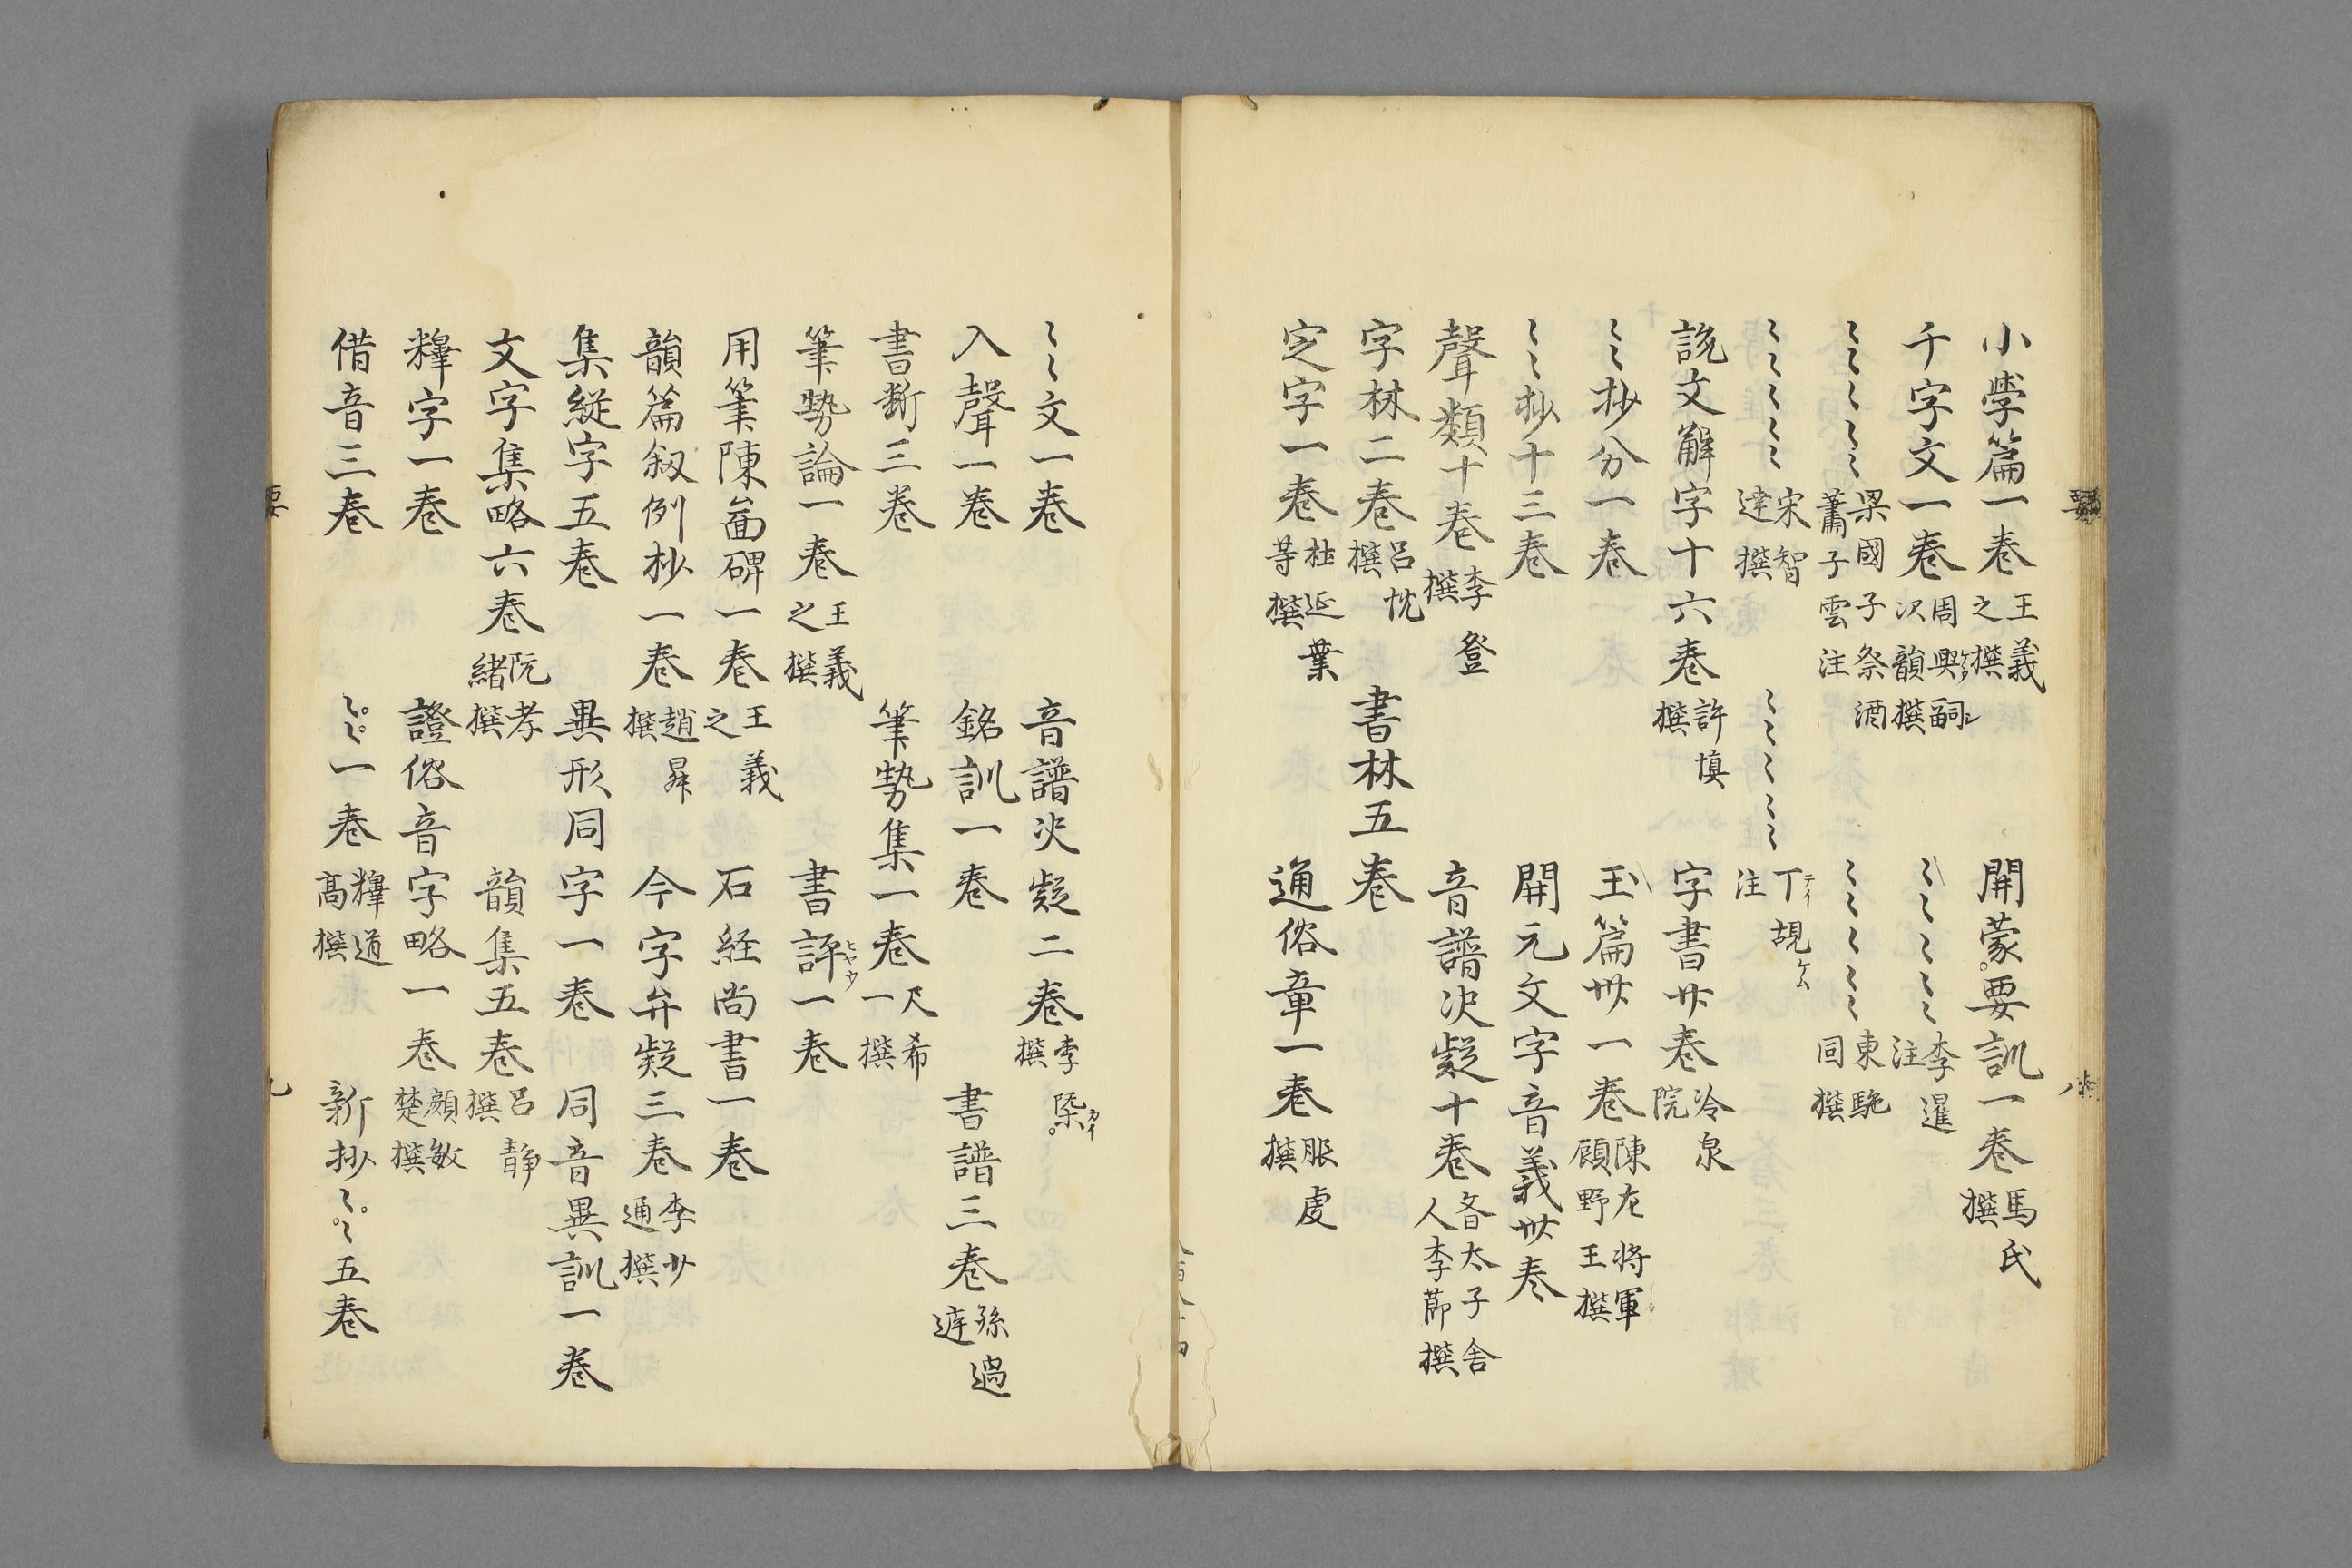 小學篇一卷 王義之撰 開蒙要訓一卷 馬氏撰
千字文一卷 周興嗣次韻撰 〻〻〻〻〻 李暹注
〻〻〻〻〻 梁國子祭酒蕭子雲注 〻〻〻〻〻 東駞固撰
〻〻〻〻〻 宋智達撰 〻〻〻〻〻 丁覘注
說文解字十六卷 許塡撰 字書廿卷 冷泉院
〻〻抄分一卷 玉篇卅一卷 陳左将軍顧野王撰
〻〻抄十三卷 開元文字音義卅卷
聲類十卷 李登撰 音譜决疑十卷 太子舍人李莭撰
字林二卷 呂忱撰 書林五卷
定字一卷 杜延業等撰 通俗章一卷 服虔撰
〻〻文一卷 音譜决疑二卷 李槩撰
入聲一卷 銘訓一卷 書譜三卷 孫過
書断三卷 筆勢集一卷 尺希一撰
筆勢論一卷 王義之撰 書評一卷
用筆陳啚碑一卷 王義之 石経尚書一卷
韻篇叙例抄一卷 趙昇撰 今字弁疑三卷 李少通撰
集縦字五卷 異形同字一卷 同音異訓一卷
文字集略六卷 阮孝緒撰 韻集五卷 呂静撰
釋字一卷 證俗音字略一卷 顔敏楚撰
借音三卷 〻〻一卷 釋道高撰 新抄〻〻五卷